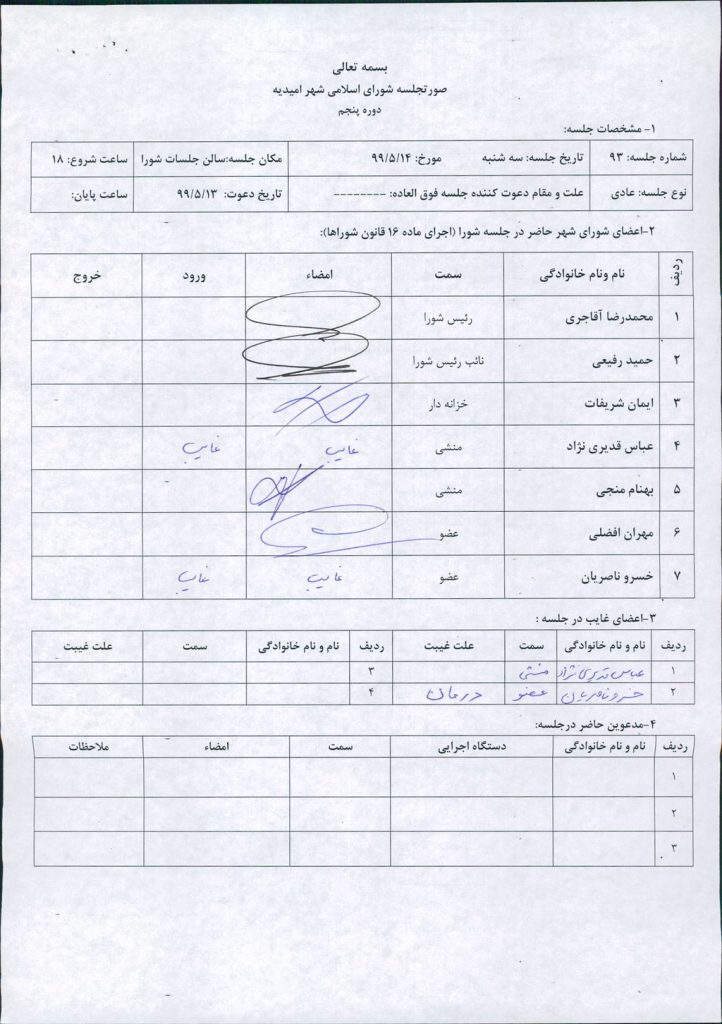 بسمه تعالی
صورتجلسه شورای اسلامی شهر امیدیه
دوره پنجم
۱- مشخصات جلسه:
شماره جلسه: ۹۳ تاریخ جلسه: سه شنبه مورخ: ۹۹/۵/۱۴ مکان جلسه:سالن جلسات شورا ساعت شروع: ۱۸
نوع جلسه: عادی علت و مقام دعوت کننده جلسه فوق العاده: -------- تاریخ دعوت: ۹۹/۵/۱۳ ساعت پایان:
۲-اعضای شورای شهر حاضر در جلسه شورا (اجرای ماده ۱۶ قانون شوراها):
ردیف نام ونام خانوادگی سمت امضاء ورود خروج
۱ محمدرضا آقاجری رئیس شورا
۲ حمید رفیعی نائب رئیس شورا
۳ ایمان شریفات خزانه دار
۴ عباس قدیری نژاد منشی غایب غایب
۵ بهنام منجی منشی
۶ مهران افضلی عضو
۷ خسرو ناصریان عضو غایب غایب
۳-اعضای غایب در جلسه :
ردیف نام و نام خانوادگی سمت علت غیبت ردیف نام و نام خانوادگی سمت علت غیبت
۱ عباس قدیری نژاد منشی ۳
۲ خسرو ناصریان عضو درمان ۴
۴-مدعوین حاضر درجلسه:
ردیف نام و نام خانوادگی دستگاه اجرایی سمت امضاء ملاحظات
۱
۲
۳